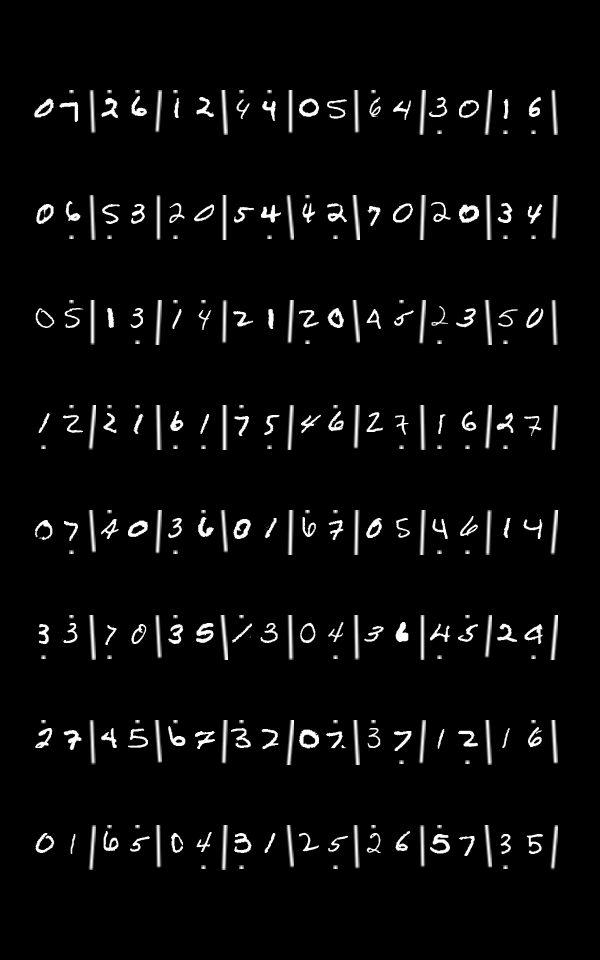 0 7 | 2 6 | 1 2 | 4 4 | 0 5 | 6 4 | 3 0 | 1 6 |
0 6 | 5 3 | 2 0 | 5 4 | 4 2 | 7 0 | 2 0 | 3 4 |
0 5 | 1 3 | 1 4 | 2 1 | 2 0 | 4 5 | 2 3 | 5 0 |
1 2 | 2 1 | 6 1 | 7 5 | 4 6 | 2 7 | 1 6 | 2 7 |
0 7 | 4 0 | 3 6 | 0 1 | 6 7 | 0 5 | 4 6 | 1 4 |
3 3 | 7 0 | 3 5 | 1 3 | 0 4 | 3 6 | 4 5 | 2 4 |
2 7 | 4 5 | 6 7 | 3 2 | 0 7 | 3 7 | 1 2 | 1 6 |
0 1 | 6 5 | 0 4 | 3 1 | 2 5 | 2 6 | 5 7 | 3 5 |